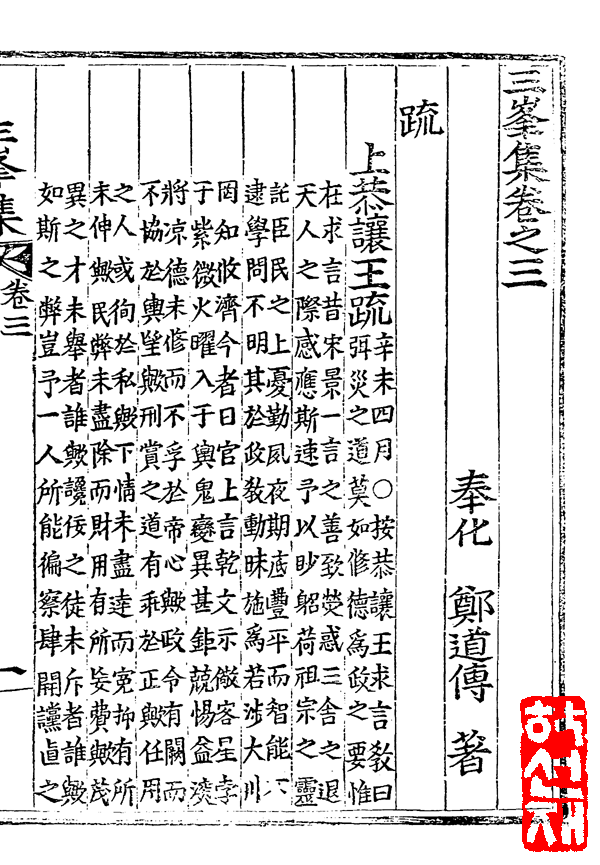 三峯集卷之三
奉化 鄭道傳 著
疏
上恭讓王疏 辛未四月○按恭讓王求言敎曰
弭災之道莫如修德爲政之要惟
在求言昔宋景一言之善致熒惑三舍之退
天人之際感應斯速予以眇躳荷祖宗之靈
託臣民之上憂勤夙夜期底豐平而智能不
逮學問不明其於政敎動昧施爲若涉大川
罔知攸濟今者日官上言乾文示儆客星孛
于紫微火曜入于輿鬼變異甚鉅兢惕益深
將凉德未修而不孚於帝心歟政令有闕而
不協於輿望歟刑賞之道有乖於正歟任用
之人或徇於私歟下情未盡達而寃抑有所
未伸歟民弊未盡除而財用有所妄費歟茂
異之才未擧者誰歟讒佞之徒未斥者誰歟
如斯之弊豈予一人所能徧察肆開讜直之
三峯集 卷三 一
한선재